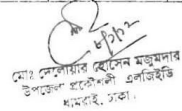 ৮/১/১২
মোঃ দেলোয়ার হোসেন মজুমদার
উপজেলা প্রকৌশলী এলজিইডি
ধামরাই, ঢাকা।